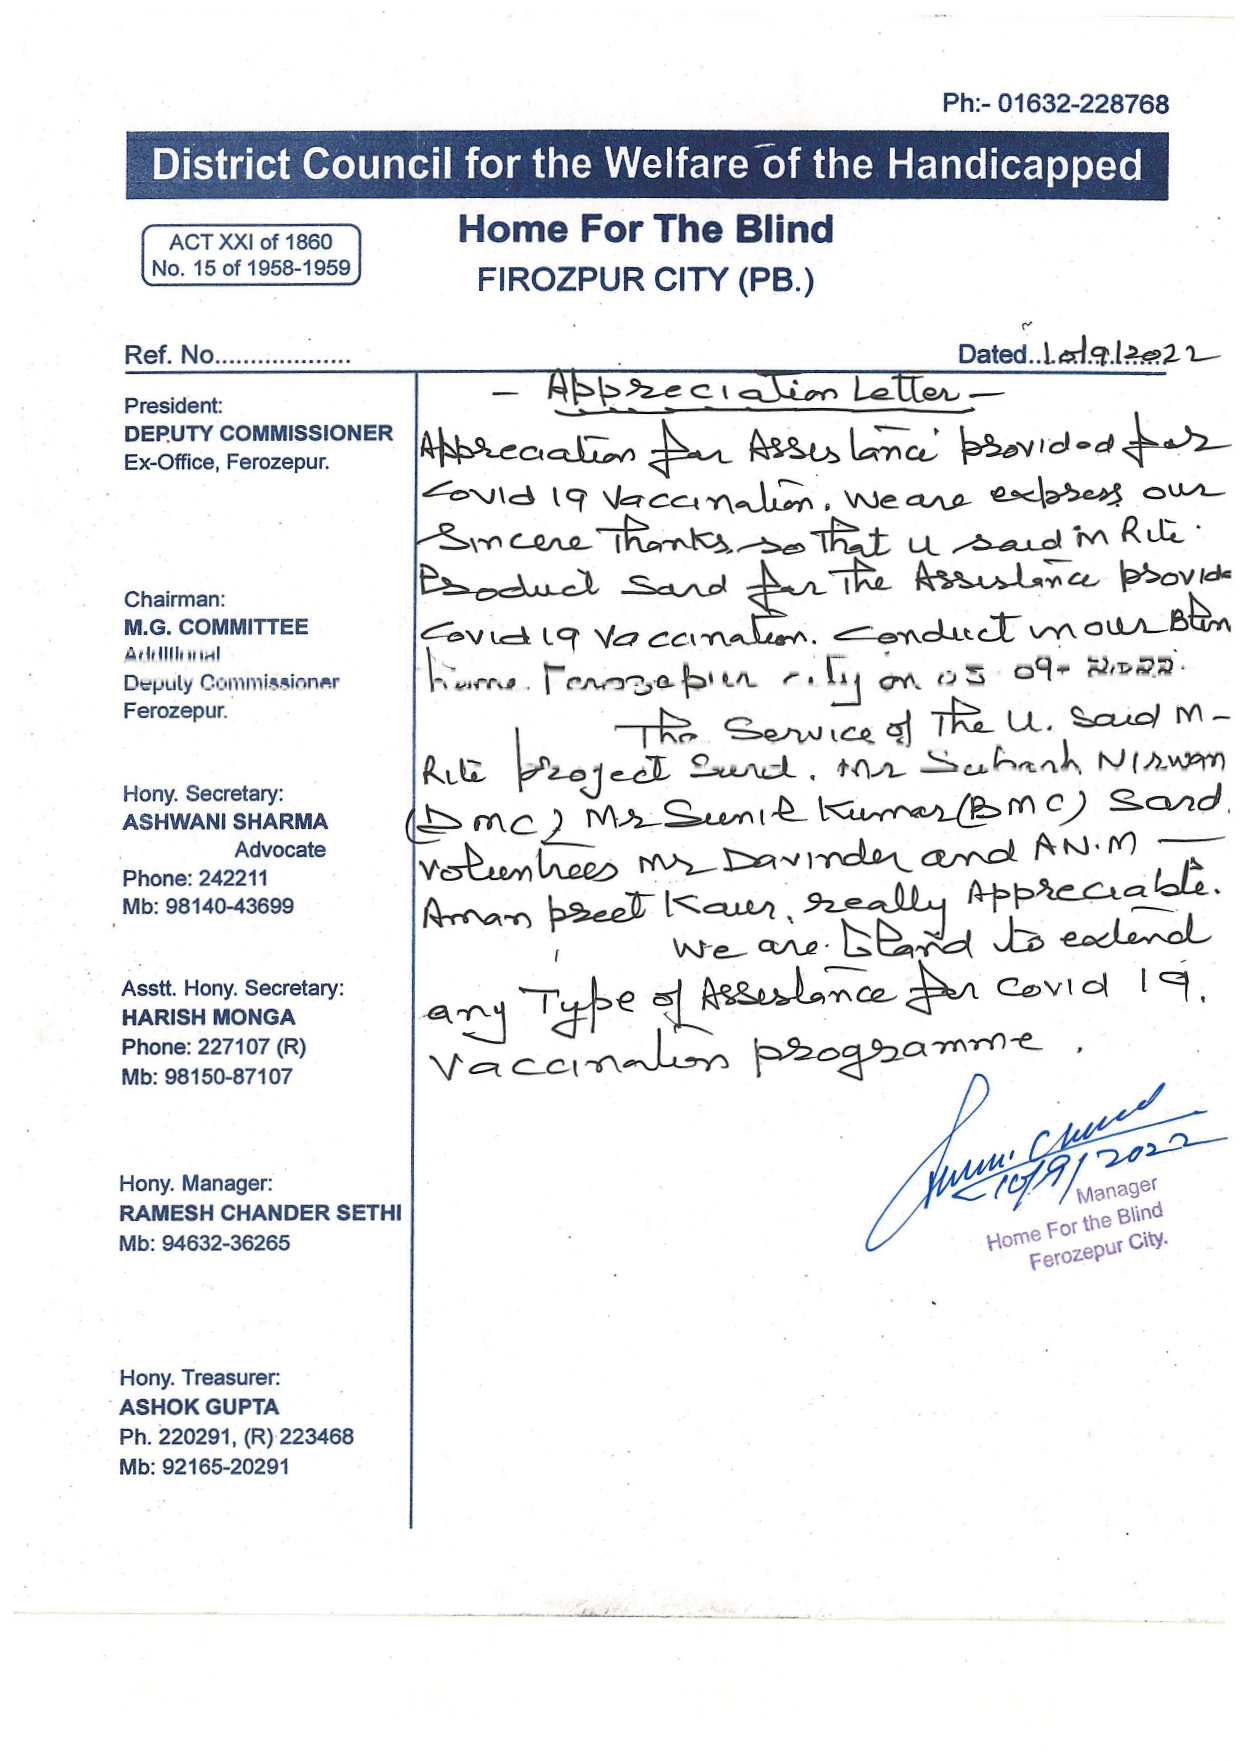 Ph:- 01632-228768
District Council for the Welfare of the Handicapped
ACT XXI of 1860
No. 15 of 1958-1959
Home For The Blind
FIROZPUR CITY (PB.)
Ref. No...................
Dated..10/9/2022
President:
DEPUTY COMMISSIONER
Ex-Office, Ferozepur.
Chairman:
M.G. COMMITTEE
Additional
Deputy Commissioner
Ferozepur.
Hony. Secretary:
ASHWANI SHARMA
Advocate
Phone: 242211
Mb: 98140-43699
Asstt. Hony. Secretary:
HARISH MONGA
Phone: 227107 (R)
Mb: 98150-87107
Hony. Manager:
RAMESH CHANDER SETHI
Mb: 94632-36265
Hony. Treasurer:
ASHOK GUPTA
Ph. 220291, (R) 223468
Mb: 92165-20291
- Appreciation Letter -
Appreciation for Assistance provided for
Covid 19 Vaccination. We are express our
Sincere Thanks so that U said m Rite
Product Sard for the Assistance provide
Covid 19 Vaccination. Conduct in our
home Ferozepur city on 05 09-2022.
The Service of The U. Said M-
Rite project Mr Subash Nirwan
(DMC) Mr Sunil Kumar (BMC) Sard.
Volunteers Mr Davinder and AN.M —
Aman preet Kaur, really Appreciable.
We are to extend
any Type of Assistance for Covid 19.
Vaccination programme.
10/9/2022
Manager
Home For the Blind
Ferozepur City.